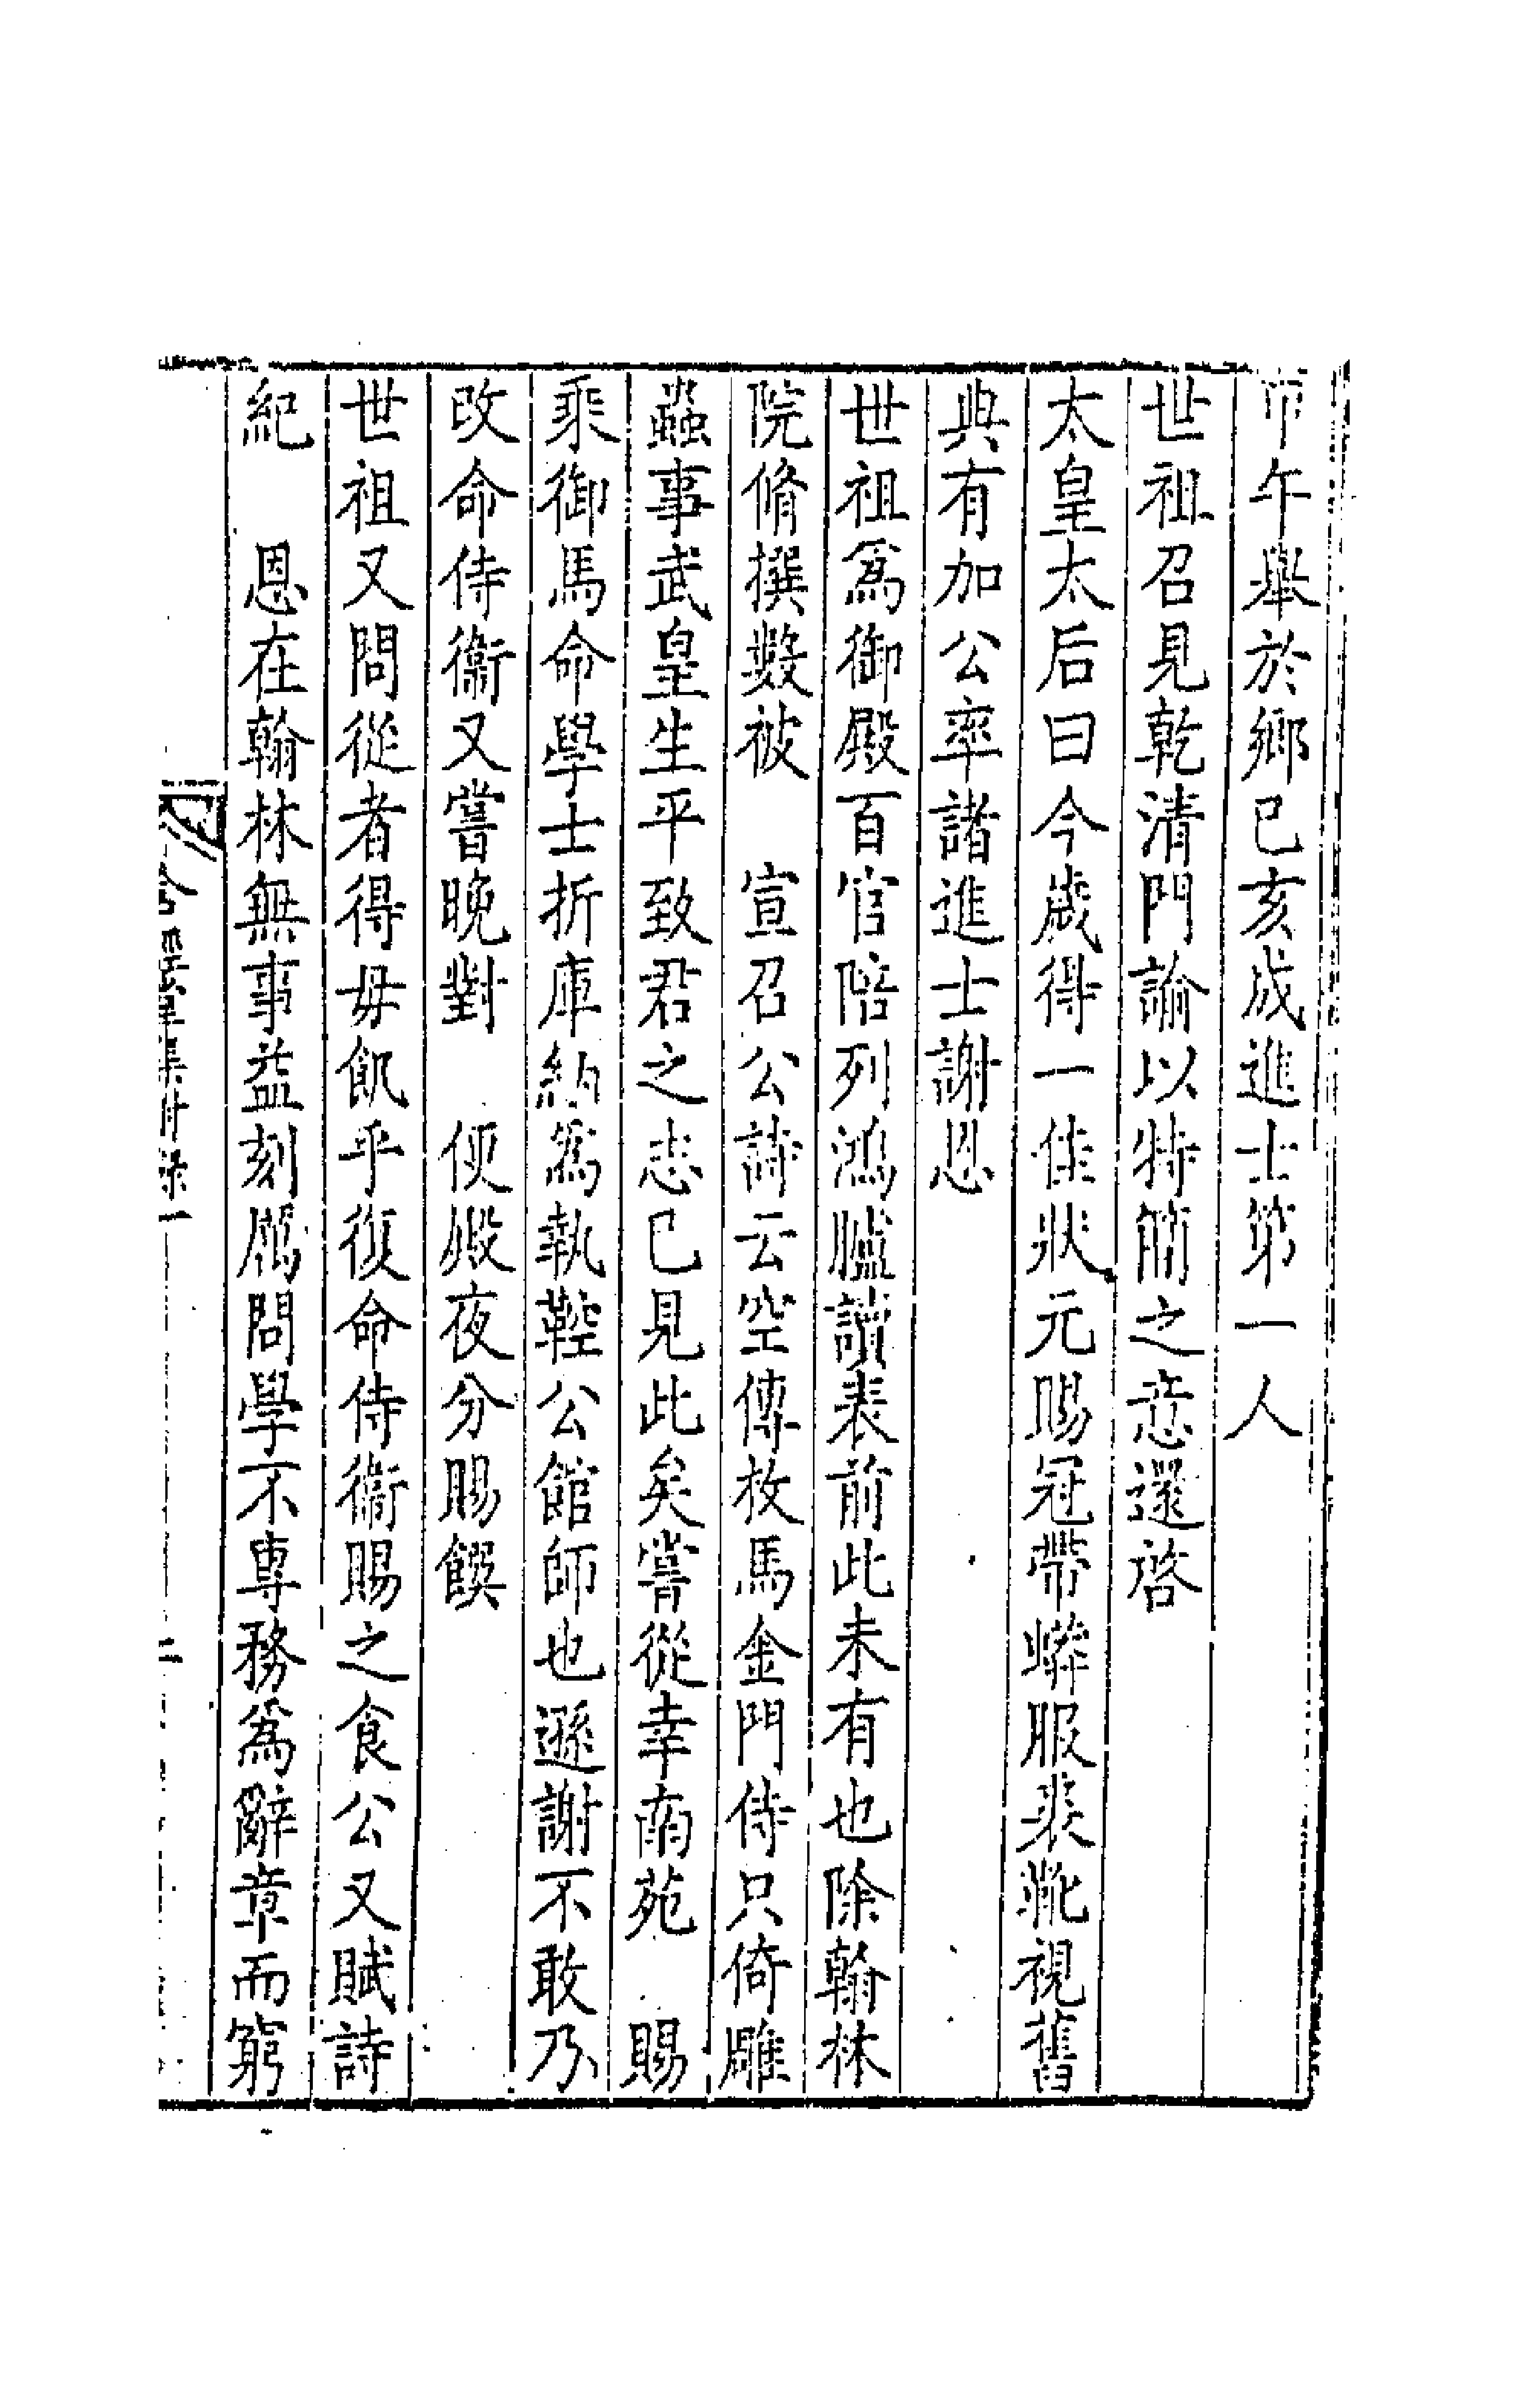 甲午舉於鄉己亥成進士第一人
世祖召見乾清門諭以特簡之意還啓
太皇太后曰今歲得一佳狀元賜冠帶蟒服裘靴視舊
典有加公率諸進士謝恩
世祖爲御殿百官陪列鴻臚讀表前此未有也除翰林
院脩撰數被　宣召公詩云空傳枚馬金門侍只倚雕
蟲事武皇生平致君之志已見此矣嘗從幸南苑　賜
乘御馬命學士折庫納爲執鞚公館師也遜謝不敢乃
改命侍衞又嘗晚對　便殿夜分賜饌
世祖又問從者得毋飢乎復命侍衞賜之食公又賦詩
紀　恩在翰林無事益刻厲問學不專務爲辭章而窮
含經堂集附錄一
二